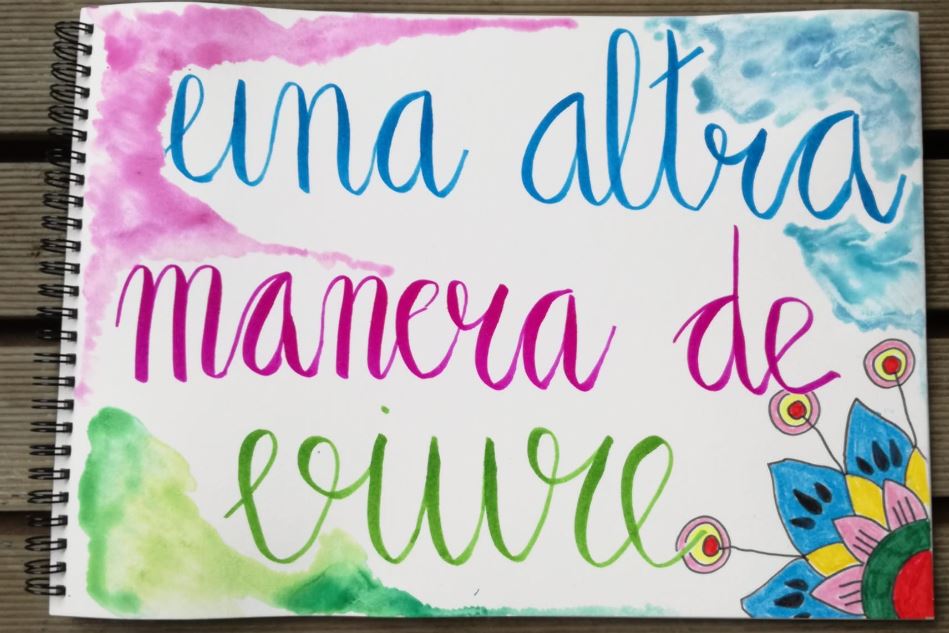 una altra
manera de
viure